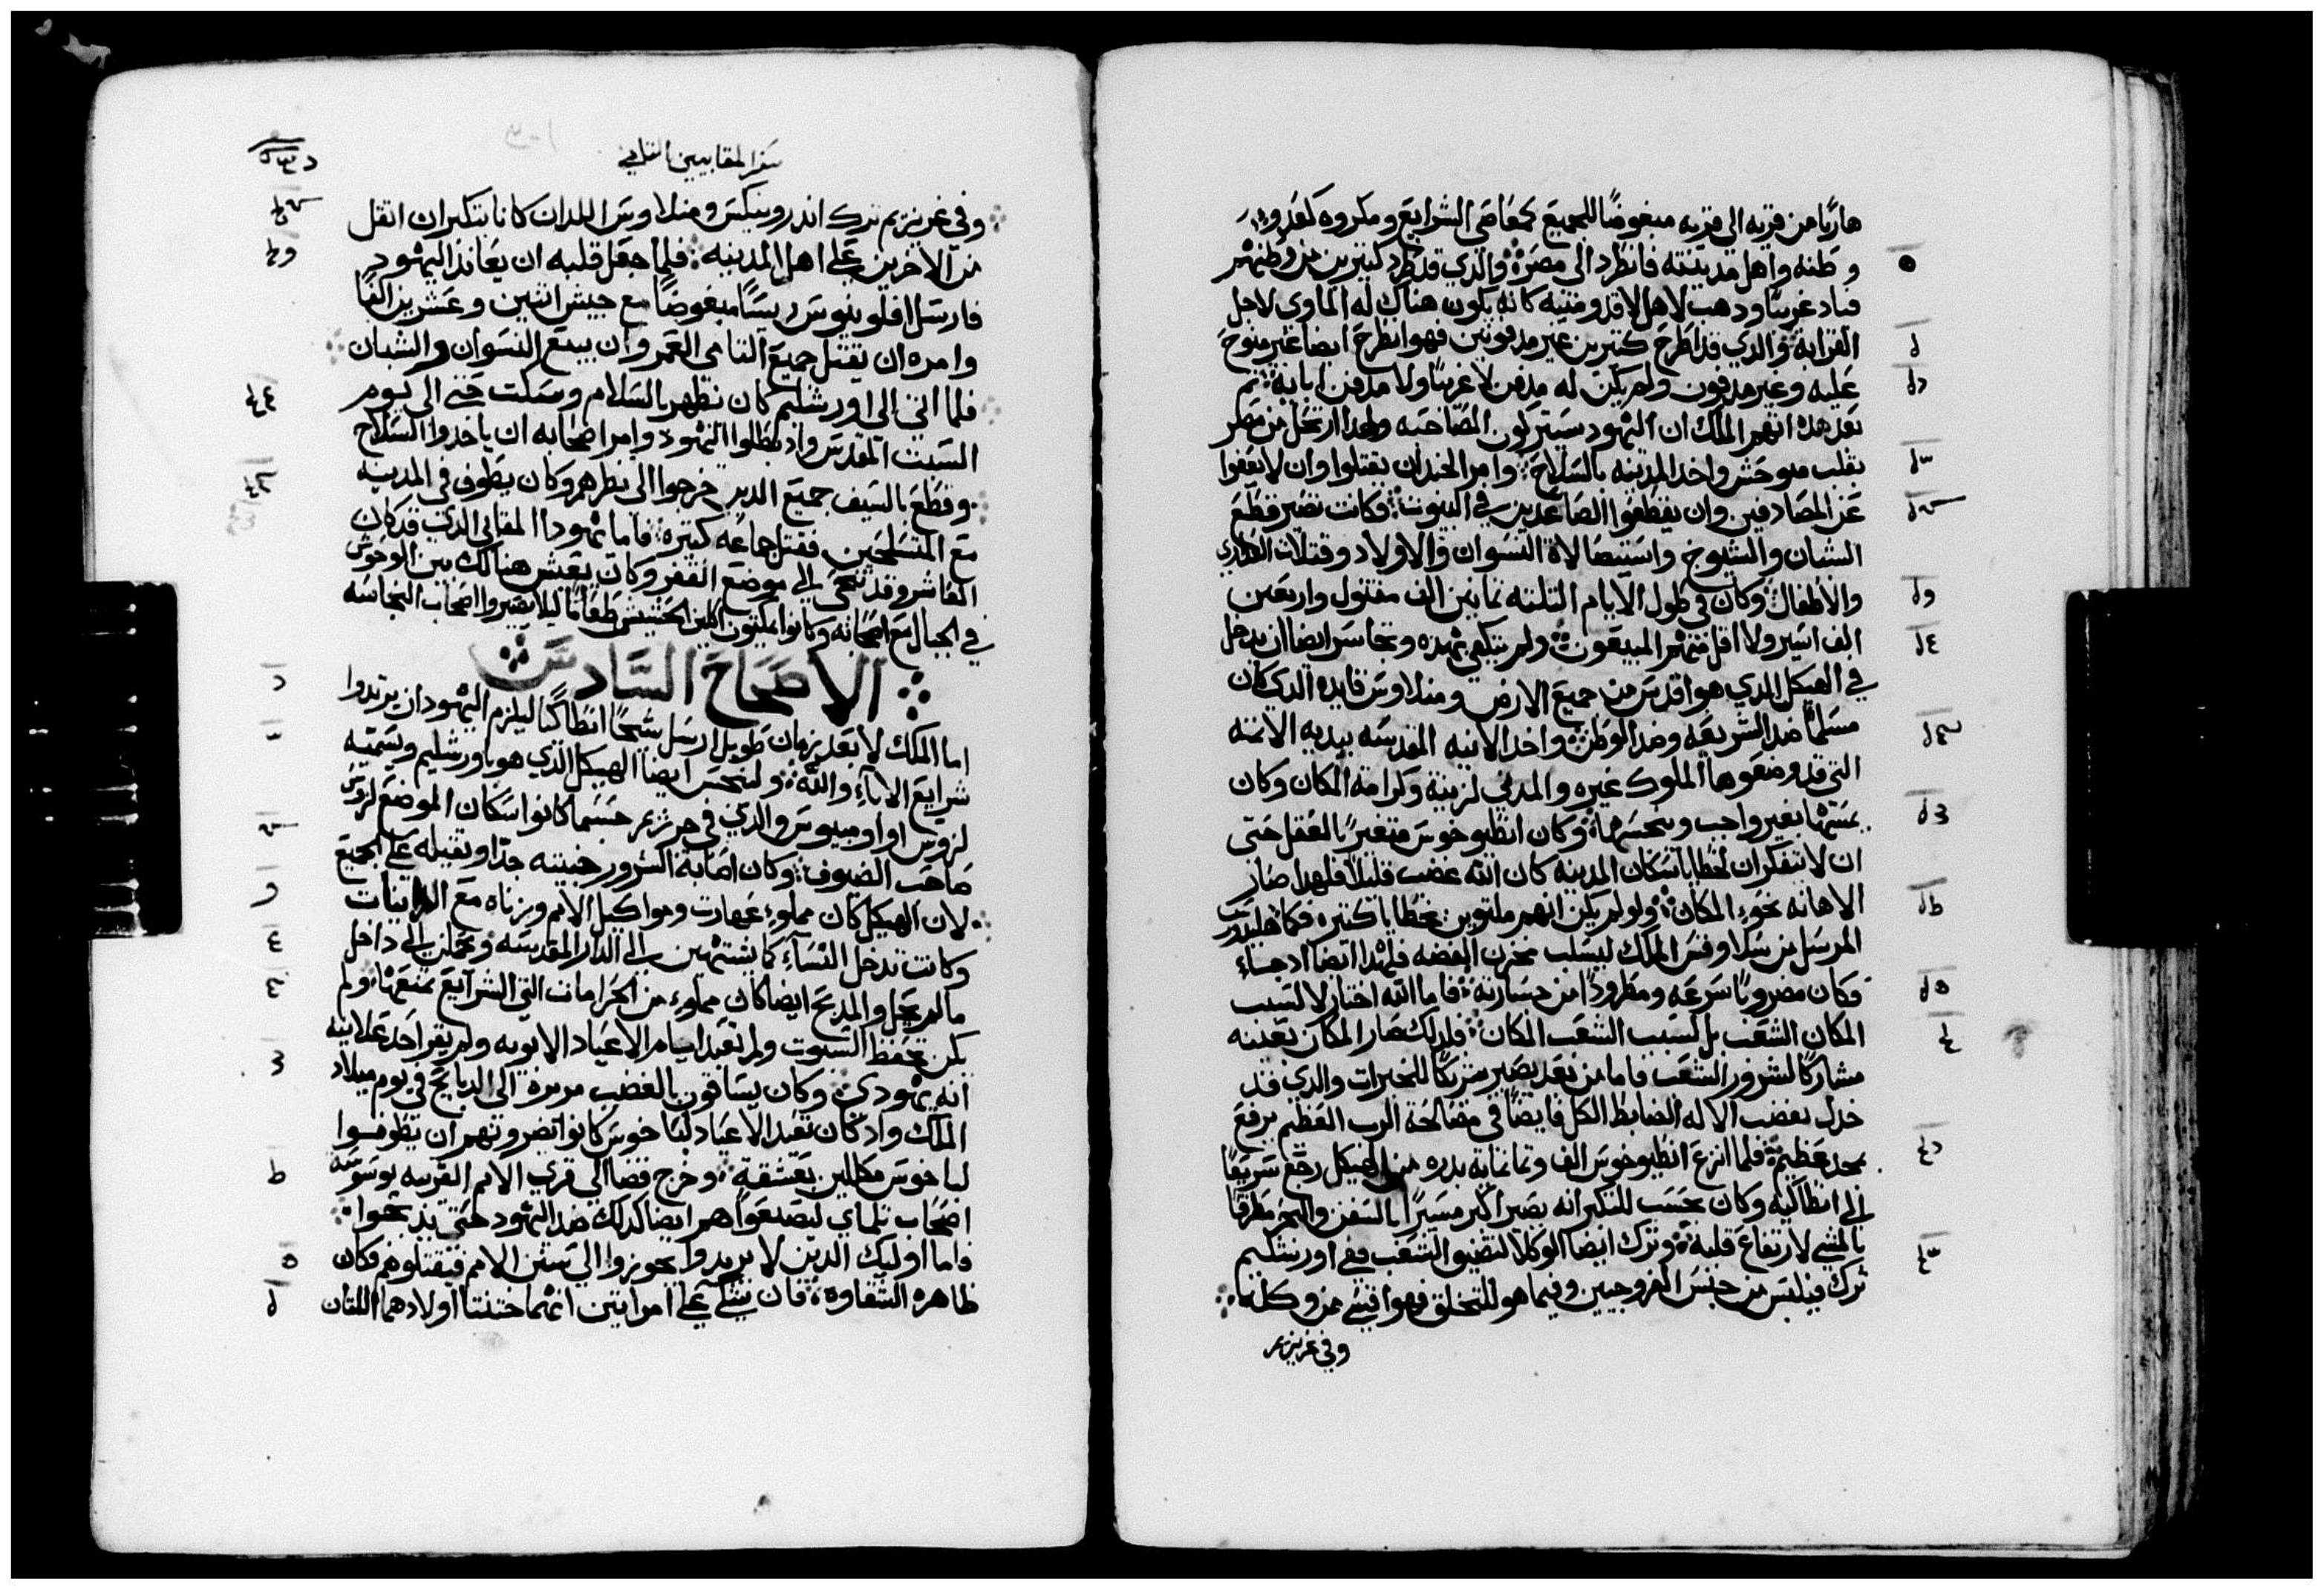 هاربًا من قريه الى قريه مبغوضًا للجميع كعاصي الشرايع ومكروه كعدو
وطنه واهل مدينته فانطرد الى مصر والدي قد طرد كتيرين من وطنهم
فباد غريبًا ودهب لاهل لاقدومنيه كانه يكون هناك له الماوى لاجل
القرابة والدي قد اطرح كتيرين غير مدفونين فهو انطرح ايضا غير منوح
عليه وغير مدفون ولم يكن له مدفن لا غريبًا ولا مدفن ابايه تم
بعد هده اتهم الملك ان اليهود سيتركون المصاحبه ولهدا ارتحل من مصر
بقلب متوحش واخد المدينه بالسلاح وامر الجند ان يقتلوا وان لا يعفوا
عن المصادفين وان يقطعوا الصاعدين في البيوت وكانت تصير قطع
الشبان والشيوخ واستيصالاة النسوان والاولاد وقتلات العداري
والاطفال وكان في طول الايام التلته تمانين الف مقتول واربعين
الف اسير ولا اقل منهم المبيعون ولم يكتفي بهده وتجاسر ايضا ان يدخل
في الهيكل الدي هو اقدس من جميع الارض ومنلاوس قايده الدي كان
مسلمًا ضد الشريعه وضد الوطن واخد الانيه المقدسه بيديه الاتمه
التي قد وضعوها الملوك غيره والمدني لزينة وكرامة المكان وكان
يمسها بغير واجب وينجسها وكان انطيوخوس متغيرًا بالعقل حتى
ان لا يتفكر ان لخطايا سكان المدينه كان الله غضب قليلًا فلهدا صار
الاهانه نحوء المكان ولو لم يكن انهم ملتوين بخطايا كتيره فكما هليودورس
المرسل من سلاوقس الملك ليسلب مخزن الفضه فلهدا ايضا اد جاء
وكان مضروبًا سرعه ومطرودًا من جسارته فاما الله اختار لا لسبب
المكان الشعب بل لسبب الشعب المكان فلدلك صار المكان بعينه
مشاركًا لشرور الشعب فاما من بعد يصير شريكًا للخيرات والدي قد
خدل بغضب الاله الضابط الكل فايضًا في مصالحة الرب العظيم يرفع
بمجد عظيم فلما انزع انطيوخوس الف وتمانماية بدره من الهيكل رجع سريعًا
الى انطاكيه وكان يحسب للتكبر انه يصير اكبر مسيرًا بالسفن والبحر مطرقًا
بالمشي لارتفاع قلبه وترك ايضا الوكلا لتضيق الشعب ففي اورشليم
ترك فيلبس من جنس الفروجيين وفيما هو للتخلق فهو اقسى من وكله
وفي غريزيم
سفر المقابيين التاني
وفي غريزيم ترك اندرونيكس ومنلاوس اللدان كانا يتكبران اتقل
من الاخرين على اهل المدينه فلما جعل قلبه ان يعاند اليهود
فارسل افلونيوس ريسًا مبغوضًا مع جيش اتنين وعشرين الفًا
وامره ان يقتل جميع التامي العمر وان يبيع النسوان والشبان
فلما اتى الى اورشليم كان تظهر بالسلام وسكت حتى الى يوم
السبت المقدس واد بطالوا اليهود وامر اصحابه ان ياخدوا السلاح
وقطع بالسيف جميع الدين خرجوا الى نظرهم وكان يطوف في المدينه
مع المتسلحين فقتل جماعه كتيره فاما يهودا المقابي الدي قد كان
العاشر وقد تنحى الى موضع القفر وكان يعيش هنالك بين الوحوش
في الجبال مع اصحابه وكانوا يمكتون اكلين الحشيش طعامًا ليلا يصيروا اصحاب النجاسه
الاصحاح السادس
اما الملك لا بعد زمان طويل ارسل شيخًا انطاكيًا ليلزم اليهود ان يرتدوا
شرايع الاباء والله ولينجس ايضا الهيكل الدي هو باورشليم ويسميه
لزوس اولومبيوس والدي في جرزيم حسبما كانوا سكان الموضع لزوس
صاحب الضيوف وكان اصابة الشرور خبيته جدًا وتقيله على الجميع
لان الهيكل كان مملوء عهارت ومواكيل الامم وبزناه مع الزانيات
وكانت تدخل النساء كاشتهين الى الدار المقدسه ويحملن الى داخل
ما لم يحل والمدبح ايضا كان مملوء من الحرامات التي الشرايع تمنعها ولم
يكن تحفظ السبوت ولم تعبد ايام الاعياد الابويه ولم يقر احد علانية
انه يهودي وكان يساقون بالغضب مرمرة الى الدبايح في يوم ميلاد
الملك واد كان تعبد الاعياد لباخوس كانوا تضرونهم ان يطوفوا
لباخوس مكللين بعشقة وخرج قضا الى قرى الامم القريبه بوسوسة
اصحاب تلماي ليصنعوا هم ايضا كدلك ضد اليهود حتى يدبحوا
فاما اوليك الدين لا يريدوا يجوزوا الى سنن الامم فيقتلوهم فكان
ظاهره الشقاوه فان شكي على امراتين انهما ختنتا اولادهما اللتان